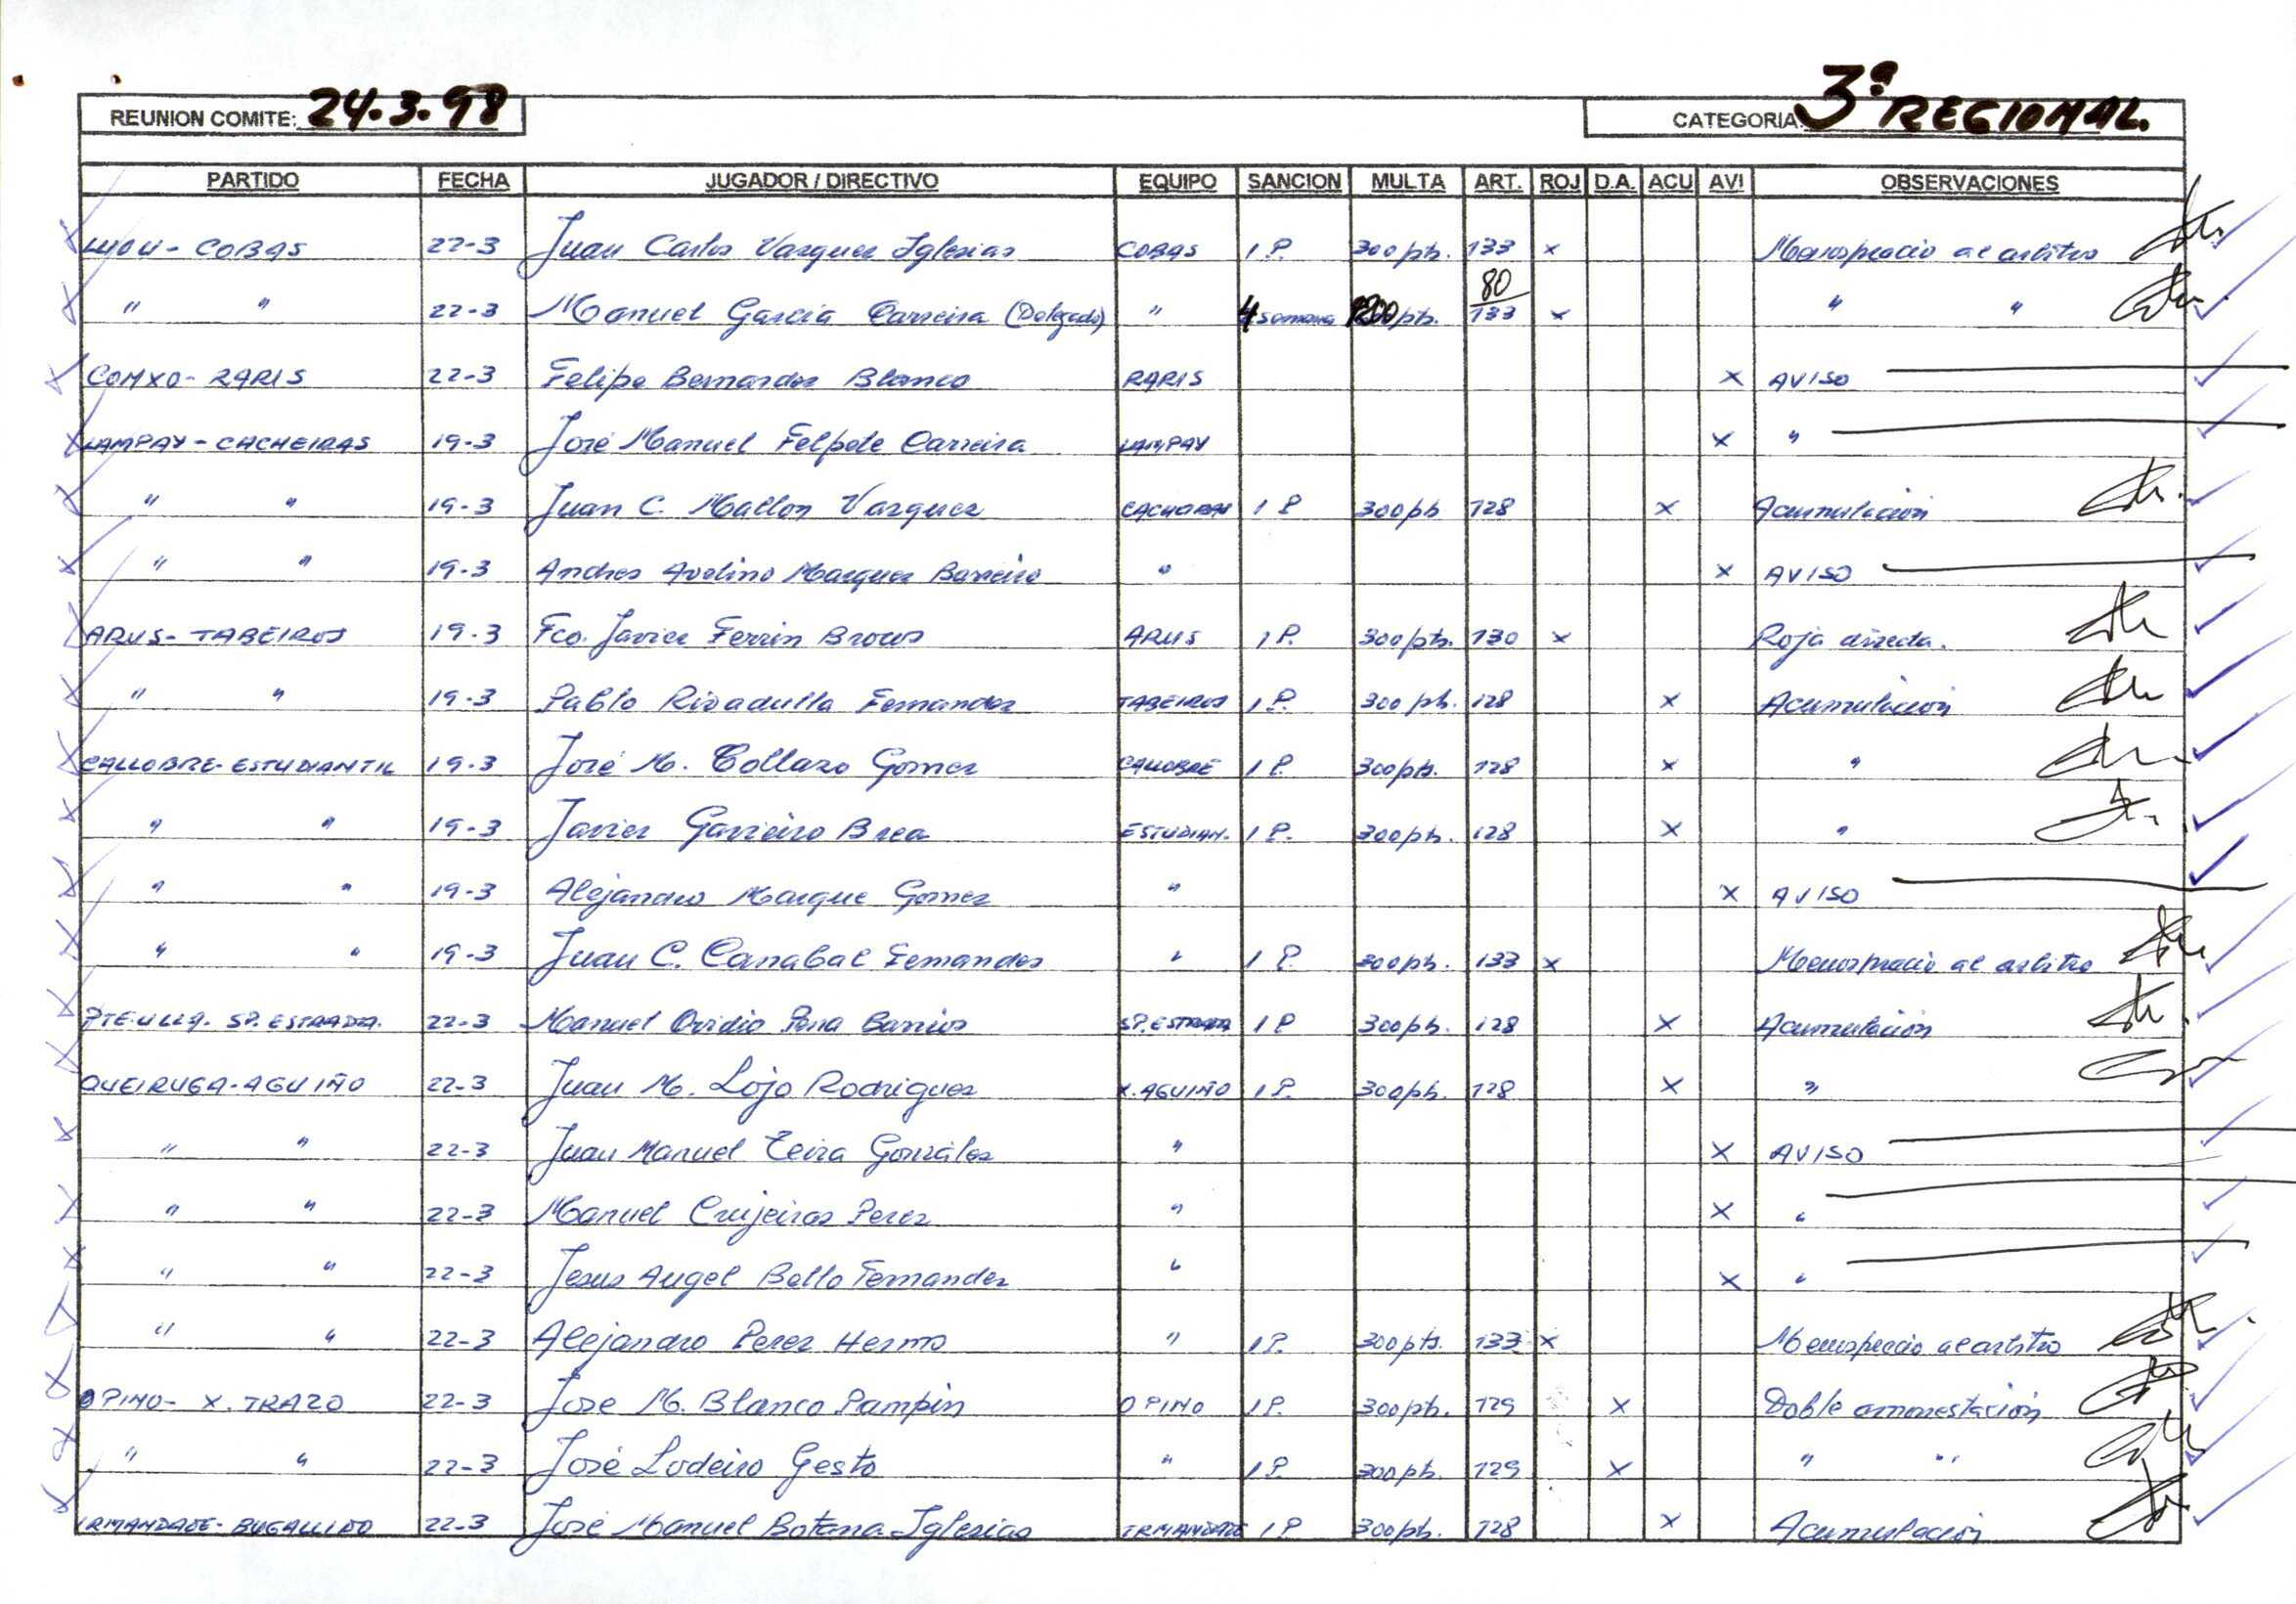 REUNION COMITE: 24.3.98 CATEGORIA: 3ª REGIONAL.
PARTIDO FECHA JUGADOR / DIRECTIVO EQUIPO SANCION MULTA ART. ROJ D.A. ACU AVI OBSERVACIONES
COBAS 22-3 Juan Carlos Vazquez Iglesias COBAS 1 P. 300 pts. 133 x Menosprecio al arbitro
" " 22-3 Manuel García Carreira (Delegado) " 4 semana pts. 80 133 x " "
CONXO - RARIS 22-3 Felipe Bernardez Blanco RARIS x AVISO
LAMPAY - CACHEIRAS 19-3 José Manuel Felpete Carreira LAMPAY x "
" " 19-3 Juan C. Mallon Vazquez 1 P 300 pts 128 x Acumulación
" " 19-3 Andres Avelino Marquez Barreiro " x AVISO
ARUS - TABEIROS 19-3 Fco. Javier Ferrin ARUS 1 P. 300 pts. 130 x Roja directa.
" " 19-3 Pablo Rivadulla Fernandez TABEIROS 1 P. 300 pts. 128 x Acumulación
CALLOBRE - ESTUDIANTIL 19-3 José M. Collazo Gomez CALLOBRE 1 P. 300 pts. 128 x "
" " 19-3 Javier Brea ESTUDIAN. 1 P. 300 pts. 128 x "
" " 19-3 Alejandro Marque Gomez " x AVISO
" " 19-3 Juan C. Canabal Fernandez " 1 P. 300 pts. 133 x Menosprecio al arbitro
PTE. ULLA - SP. ESTRADA. 22-3 Manuel Ovidio Pena Barrios SP. ESTRADA 1 P 300 pts. 128 x Acumulación
QUEIRUGA - AGUIÑO 22-3 Juan M. Lojo Rodriguez X. AGUIÑO 1 P. 300 pts. 128 x "
" " 22-3 Juan Manuel Teira González " x AVISO
" " 22-3 Manuel Crujeiras Perez " x "
" " 22-3 Jesus Angel Bello Fernandez " x "
" " 22-3 Alejandro Perez Hermo " 1 P. 300 pts. 133 x Menosprecio al arbitro
O PINO - X. TRAZO 22-3 Jose M. Blanco Pampin O PINO 1 P. 300 pts. 129 x Doble amonestación
" " 22-3 José Lodeiro Gesto " 1 P. 300 pts. 129 x " "
IRMANDADE - BUGALLIDO 22-3 José Manuel Botana Iglesias IRMANDADE 1 P 300 pts. 128 x Acumulación